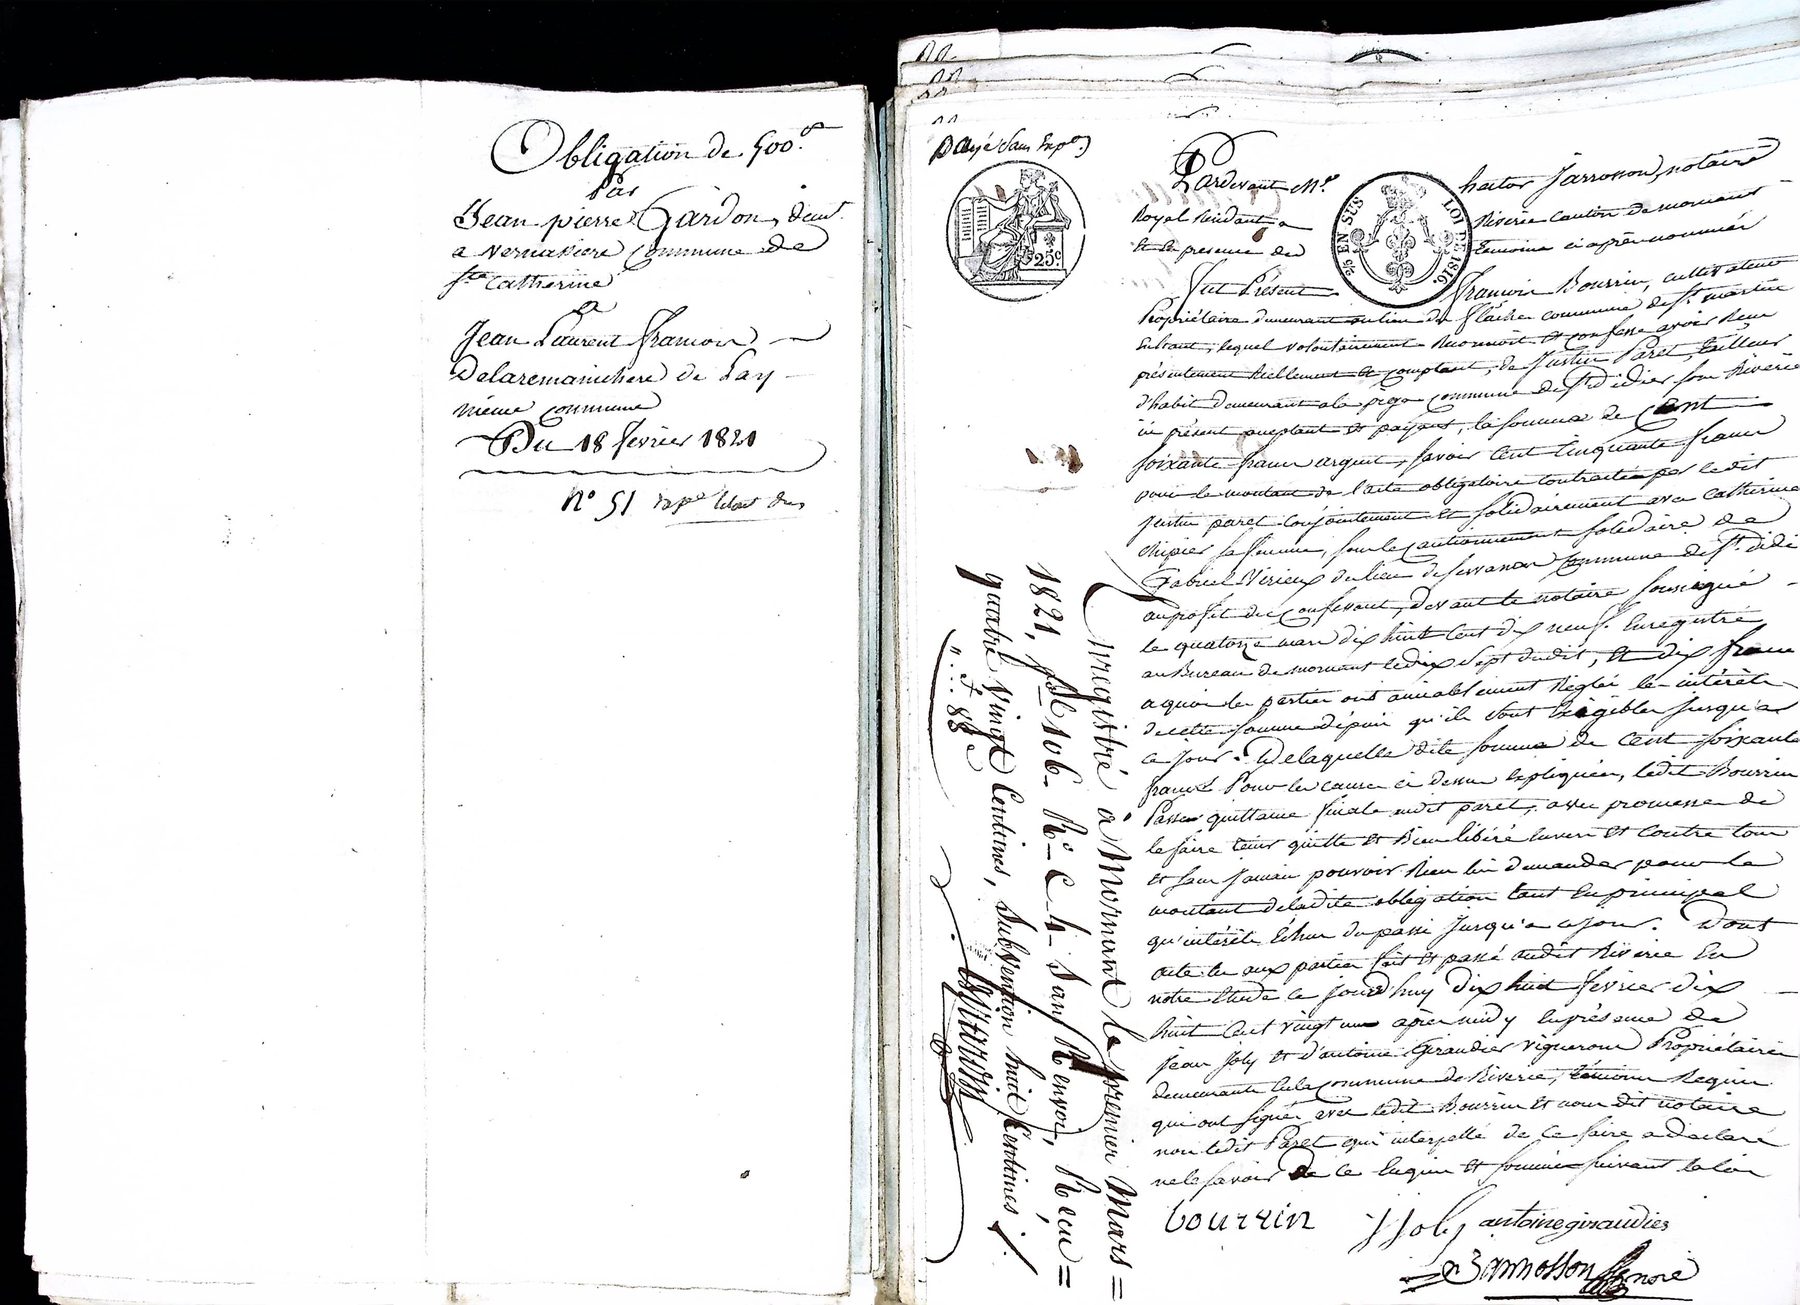 Obligation de 500.f
Par
Jean pierre Gardon, demt.
a vernassiere Commune de
Ste. Catherine
a
Jean Laurent francois
De Lay
même commune
Du 18 fevrier 1821
N° 51
Payé sans
25c.
25c EN SUS LOI DE 1816.
Pardevant Me. hector Jarrosson, notaire
Royal Residant a Riverie canton de mornant
et en presence des temoins ci après nommés
fut Présent francois Bourrin, cultivateur
Propriétaire demeurant au lieu du flacher commune de St. martin
lequel volontairement Reconnoit et confesse avoir Recu
présentement Réellement et comptant, de Justin Paret, tailleur
d'habit demeurant a la pega commune de St. didier sou Riverie
ici présent acceptant et payant, la somme de Cent
soixante francs argent, savoir Cent Cinquante francs
pour le montant de l'acte obligatoire contracté par ledit
justin paret conjointement et solidairement avec Catherine
chipier sa femme, sous le cautionnement solidaire de
Gabriel Virieux du lieu de Commune de St. didi
au profit du confessant, devant le notaire soussigné
le quatorze mars dix huit Cent dix neuf. Enregistré
au Bureau de mornant le dix sept dudit, et dix francs
a quoi les parties ont amiablement Réglé les intérêts
de cette somme depuis qu'ils sont Exigibles jusqu'a
ce jour. De laquelle dite somme de Cent soixante
francs Pour les causes ci dessus Expliquées, ledit Bourrin
Passe quittance finale audit paret, avec promesse de
le faire tenir quitte et Bien libéré Envers et Contre tous
et sans Jamais pouvoir Rien lui demander pour le
montant de ladite obligation tant En principal
qu'intérêts Echus du passé Jusqu'a ce jour. Dont
acte lu aux parties fait et passé audit Riverie En
notre Etude ce jourd'huy Dix huit fevrier dix
huit Cent vingt un après midy En présence de
Jean Joly et d'antoine Giraudier vignerons Propriétaires
demeurants En la commune de Riverie, témoins Requis
qui ont signés avec ledit Bourrin et nous dit notaire
non ledit Paret qui interpellé de ce faire a déclaré
ne le savoir De ce Enquis et sommé suivant la loi
bourrin JJoly antoine giraudier
Jarrosson nore
Enregistré à Mornant le premier Mars =
1821, fol 106. Ro. C. 4. Sans Renvoi, Reçu =
quatre Vingt Centimes, Subvention huit Centimes ./.
". : 88c